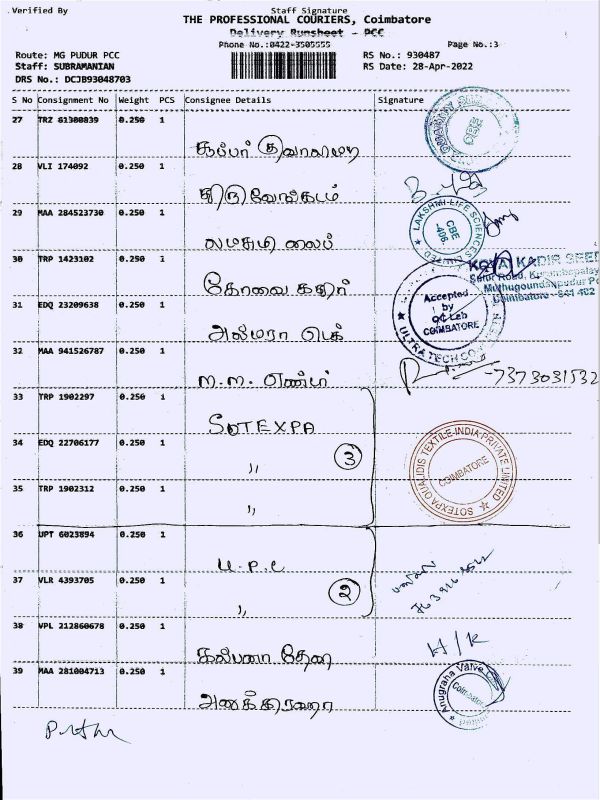 Verified By Staff Signature
THE PROFESSIONAL COURIERS, Coimbatore
Delivery Runsheet - PCC
Phone No.:0422-3505555 Page No.:3
Route: MG PUDUR PCC RS No.: 930487
Staff: SUBRAMANIAN RS Date: 28-Apr-2022
DRS No.: DCJB93048703
S No Consignment No Weight PCS Consignee Details Signature
27 TRZ 61300839 0.250 1
28 VLI 174092 0.250 1
திருவேங்கடம்
29 MAA 284523730 0.250 1
LAKSHMI LIFE SCIENCES LIMITED
CBE
-406.
லட்சுமி லைப்
30 TRP 1423102 0.250 1
KOVAI KADIR SEED
Muthugoundanpudur Po
Coimbatore - 641 402
கோவை கதிர்
31 EDQ 23209638 0.250 1
Accepted
by
QC Lab
COIMBATORE
ULTRA TECH
அல்ட்ரா டெக்
32 MAA 941526787 0.250 1
M.M.
-7373031532
33 TRP 1902297 0.250 1
SOTEXPA
34 EDQ 22706177 0.250 1
" 3
SOTEXPA QUALIDIS TEXTILE INDIA PRIVATE LIMITED
COIMBATORE
35 TRP 1902312 0.250 1
"
36 UPT 6023894 0.250 1
U.P.C
37 VLR 4393705 0.250 1
" 2
38 VPL 212860678 0.250 1
H/R
கல்பனா தேவி
39 MAA 281004713 0.250 1
Anugraha Valve
Coimbatore
அனுக்கிரஹா